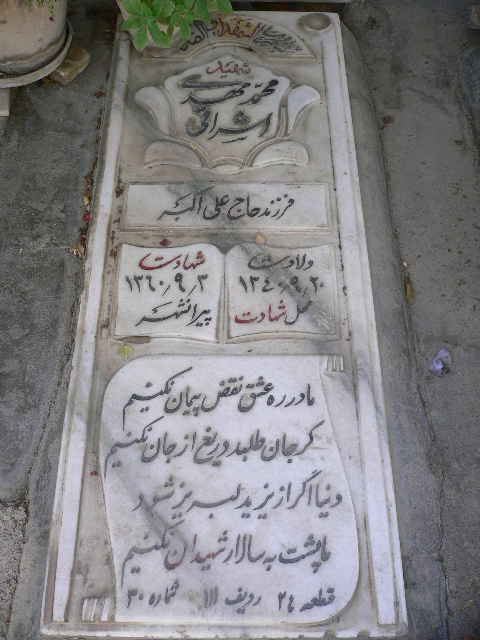 شهید
محمد مهدی
اشراقی
فرزند حاج علی اکبر
ولادت
۱۳۴۰٫۹٫۲۰
محل شهادت
شهادت
۱۳۶۰٫۹٫۳
پیرانشهر
ما در ره عشق نقض پیمان نکنیم
گر جان طلبد دریغ از جان نکنیم
دنیا اگر از یزید لبریز شود
ما پشت به سالار شهیدان نکنیم
قطعه ۲۴ ردیف ۱۱۱ شماره ۳۰